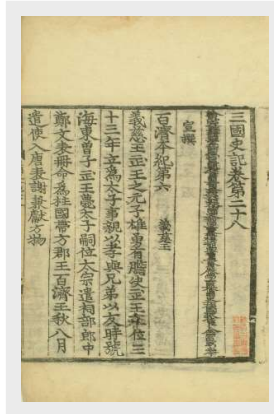 三國史記卷第二十八
宣撰
百濟本紀第六 義慈王
義慈王武王之元子雄勇有膽決武王在位三
十三年立爲太子事親以孝與兄弟以友時號
海東曾子武王薨太子嗣位太宗遣祠部郎中
鄭文表冊命爲柱國帶方郡王百濟王秋八月
遣使入唐表謝兼獻方物